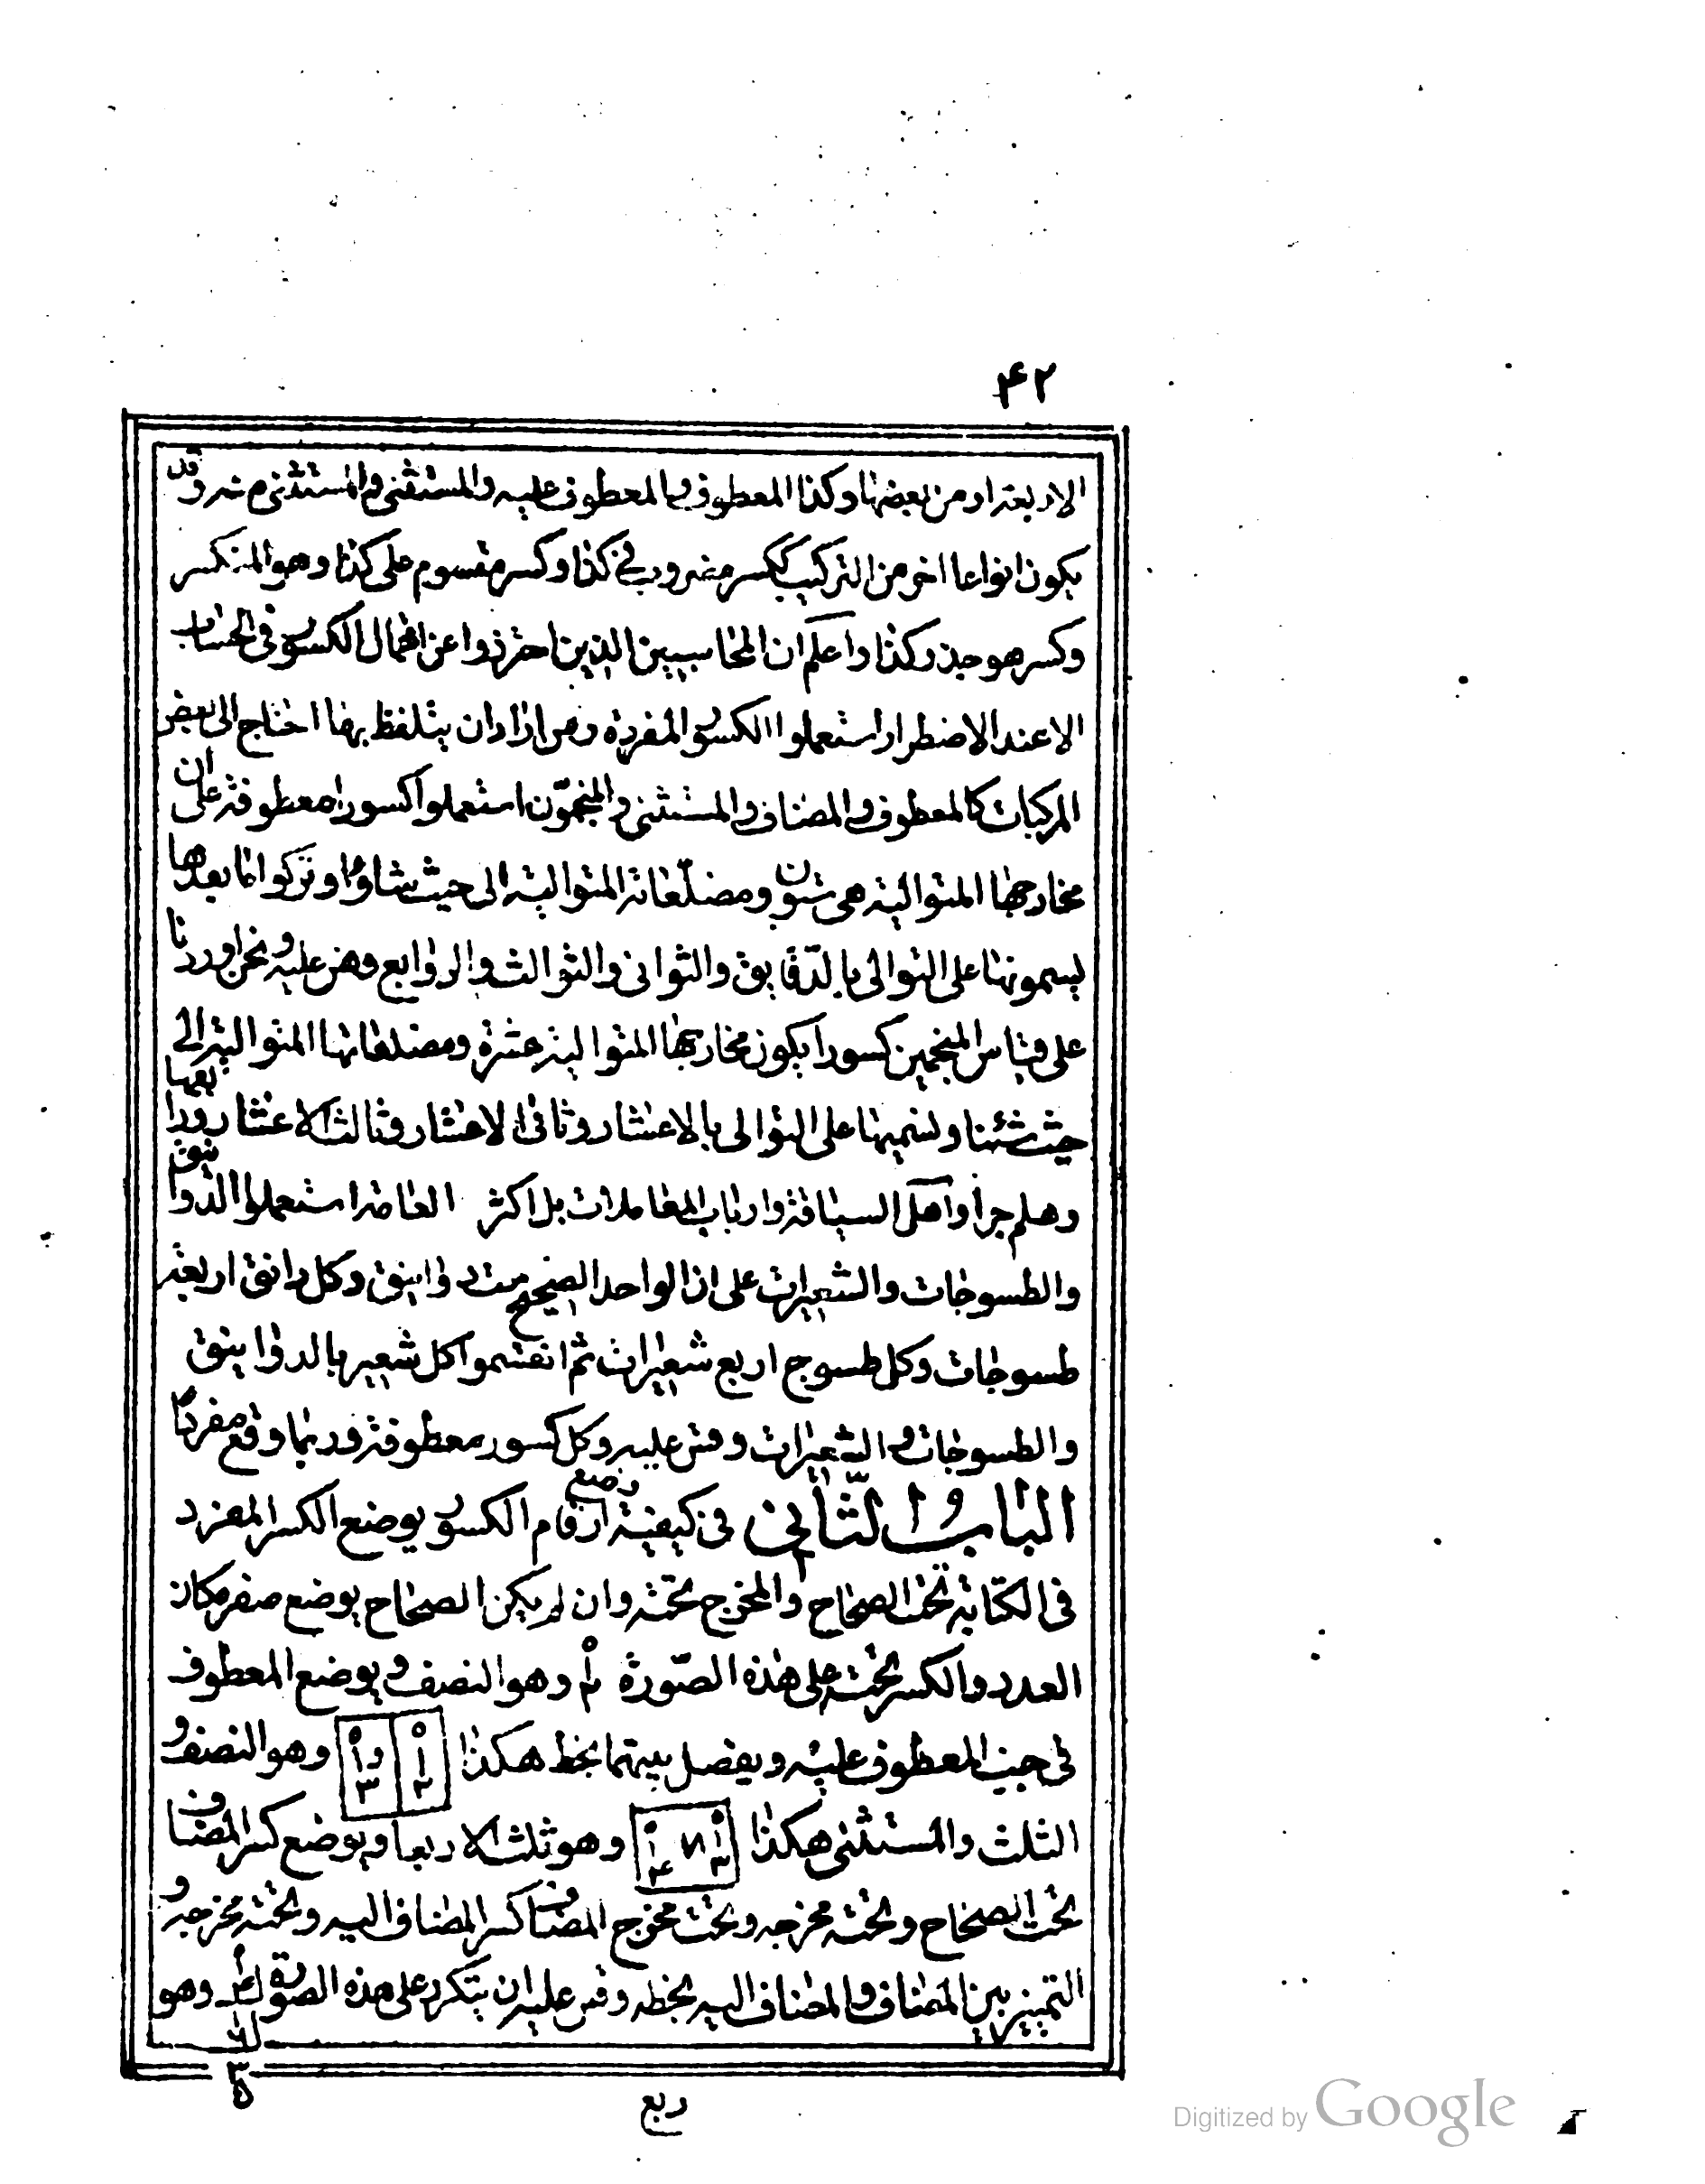 ۴۲
الاربعة او من بعضها وكذا المعطوف والمعطوف عليه والمستثنى والمستثنى منه وقد
يكون انواعا اخر من التركيب ككسر مضروب في كذا وكسر مقسوم على كذا وهو المنكسر
وكسر هو جذر كذا واعلم ان المحاسبين الذين احترزوا عن اعمال الكسور في الحساب
الا عند الاضطرار استعملوا الكسور المفردة ومن اراد ان يتلفظ بها احتاج الى بعض
المركبات كالمعطوف والمضاف والمستثنى والمنجمون استعملوا كسورا معطوفة على ان
مخارجها المتوالية هي ستون ومضلعاته المتوالية الى حيث شاؤا وتركوا ما بعدها
يسمونها على التوالى بالدقايق والثواني والثوالث والروابع وقس عليه ونحن اوردنا
على قياس المنجمين كسورا يكون مخارجها المتوالية عشرة ومضلعاتها المتوالية الى
حيث شئنا ونسميها على التوالى بالاعشار وثاني الاعشار وثالث الاعشار ورابعها
وهلم جرا واهل السياقة وارباب المعاملات بل اكثر العامة استعملوا الدوانيق
والطسوجات والشعيرات على ان الواحد الصحيح ستة دوانيق وكل دانق اربعة
طسوجات وكل طسوج اربع شعيرات ثم انقسموا كل شعير بالدوانيق
والطسوجات والشعيرات وقس عليه وكل كسور معطوفة وربما وقع مفردا
الباب الثاني في كيفية وضع ارقام الكسور يوضع الكسر المفرد
في الكتابة تحت الصحاح والمخرج تحته وان لم يكن الصحاح يوضع صفر مكان
العدد والكسر تحته على هذه الصورة ۰ ۱ ۲ وهو النصف ويوضع المعطوف
في جنب المعطوف عليه ويفصل بينهما بخط هكذا ۰ ۱ ۲ و۰ ۱ ۳ وهو النصف و
الثلث والمستثنى هكذا ۰ ۱ ۳ الا ۰ ۱ ۴ وهو ثلث الا ربعا ويوضع كسر المضاف
تحت الصحاح وتحته مخرجه وتحت مخرج المضاف كسر المضاف اليه وتحته مخرجه و
التمييز بين المضاف والمضاف اليه بخطه وقس عليه ان يتكرر على هذه الصورة وهو
ربع
Digitized by Google